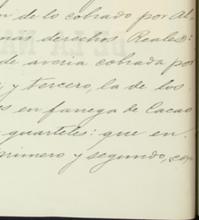 n de lo cobrado por Al-
mas derechos Reales:
de averia cobrada por
y tercero, la de los
s en fanega de Cacao
quarteles: que en
primero y segundo, con